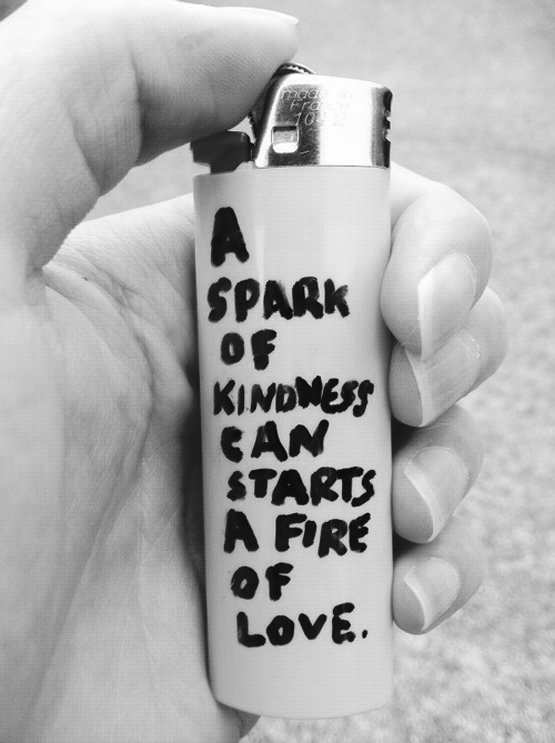 made in
France
A
SPARK
OF
KINDNESS
CAN
STARTS
A FIRE
OF
LOVE.